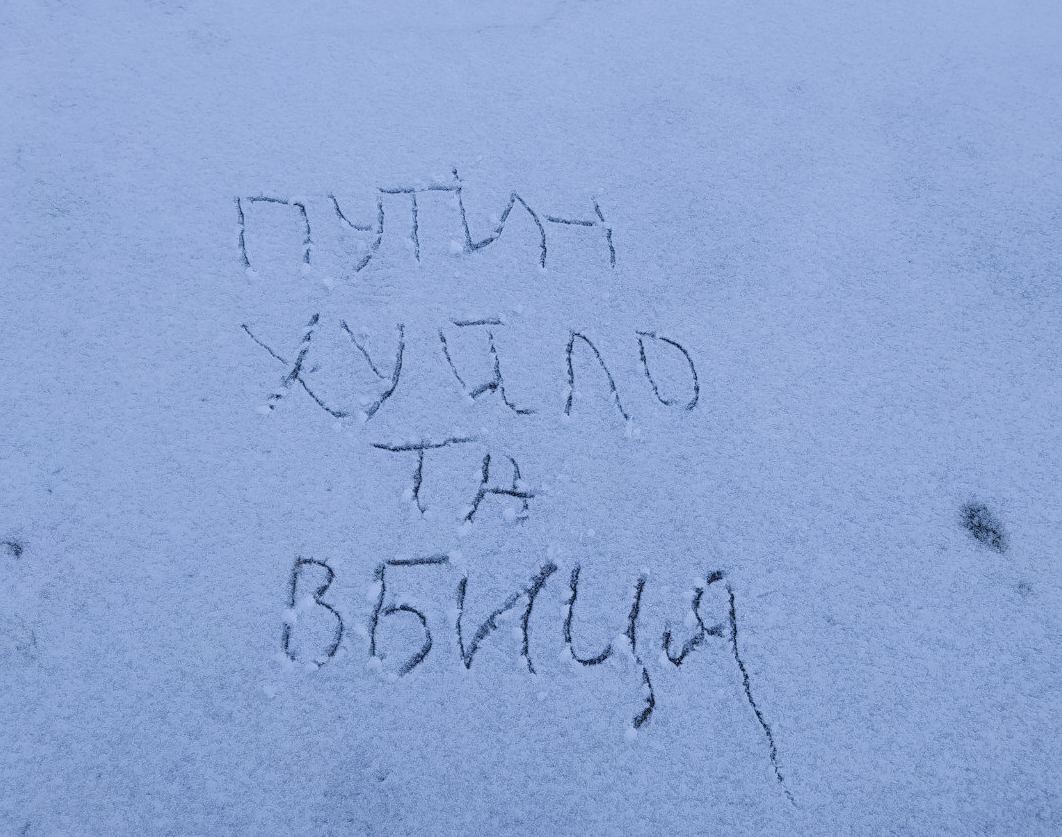 ПУТИН
ХУЙЛО
ТА
ВБИЦЯ